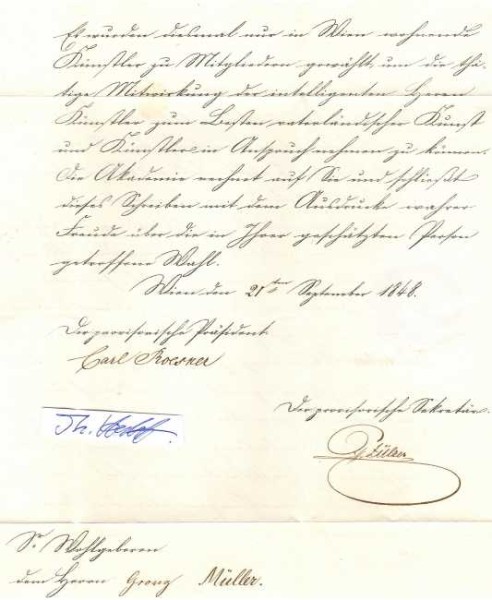 Es wurden diesmal nur in Wien wohnende
Künstler zu Mitgliedern gewählt, um die thä-
tige Mitwirkung der intelligenten Herren
Künstler zum Besten vaterländischer Kunst
und Künstler in Anspruch nehmen zu können.
Die Akademie rechnet auf Sie und schließt
dieses Schreiben mit dem Ausdrucke wahrer
Freude über die in Ihrer geschätzten Person
getroffene Wahl.
Wien den 21ten September 1848.
Der provisorische Präsident
Carl Roesner
Der provisorische Sekretär.
Th.
Sr Wohlgeboren
dem Herrn Georg Müller.